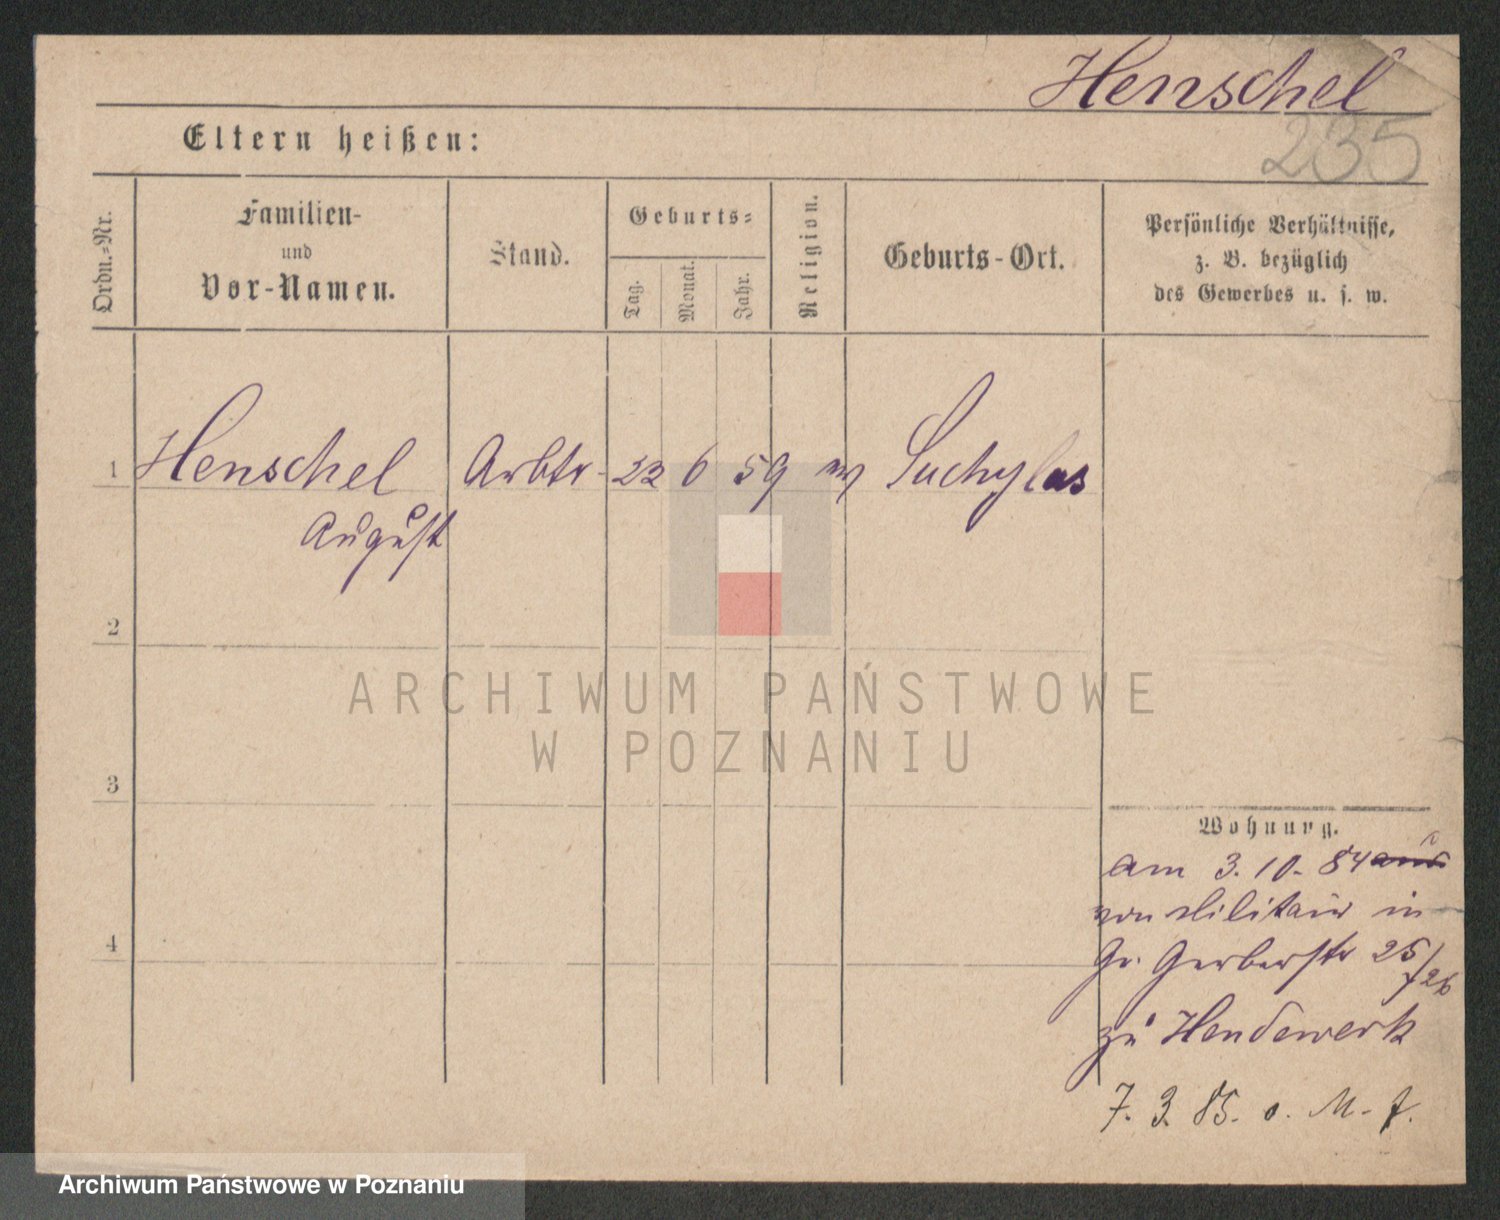 Henschel
235
Eltern heißen:
Ordn.-Nr.
Familien-
und
Vor-Namen.
Stand.
Geburts-
Tag.
Monat.
Jahr.
Religion.
Geburts-Ort.
Persönliche Verhältnisse,
z. B. bezüglich
des Gewerbes u. s. w.
1 Henschel Arbtr 22 6 59 Suchylas
August
2
3
4
ARCHIWUM PAŃSTWOWE
W POZNANIU
Wohnung.
am 3. 10. 84
von Militair in
Gr. Gerberstr 25/26
zu Hendewerk
7. 3. 85. o. M. f.
Archiwum Państwowe w Poznaniu